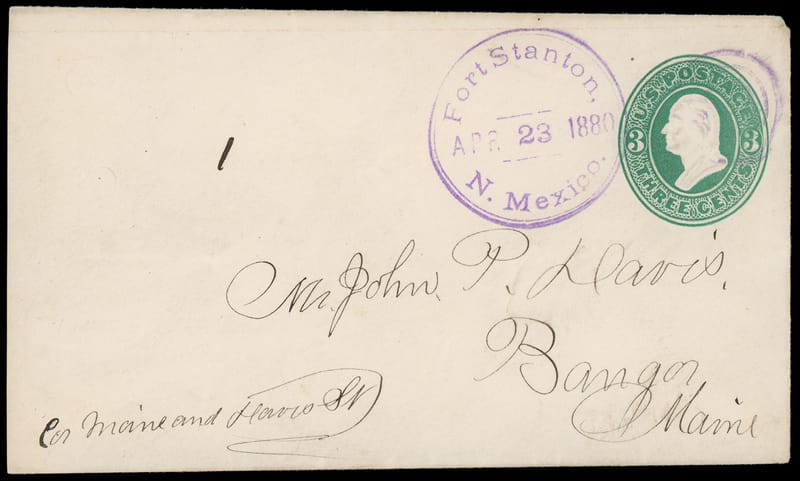 Fort Stanton,
APR 23 1880
N. Mexico.
U.S. POSTAGE
3 3
THREE CENTS
Mr. John. P. Davis.
Bangor
Maine
Cor Maine and Davis St